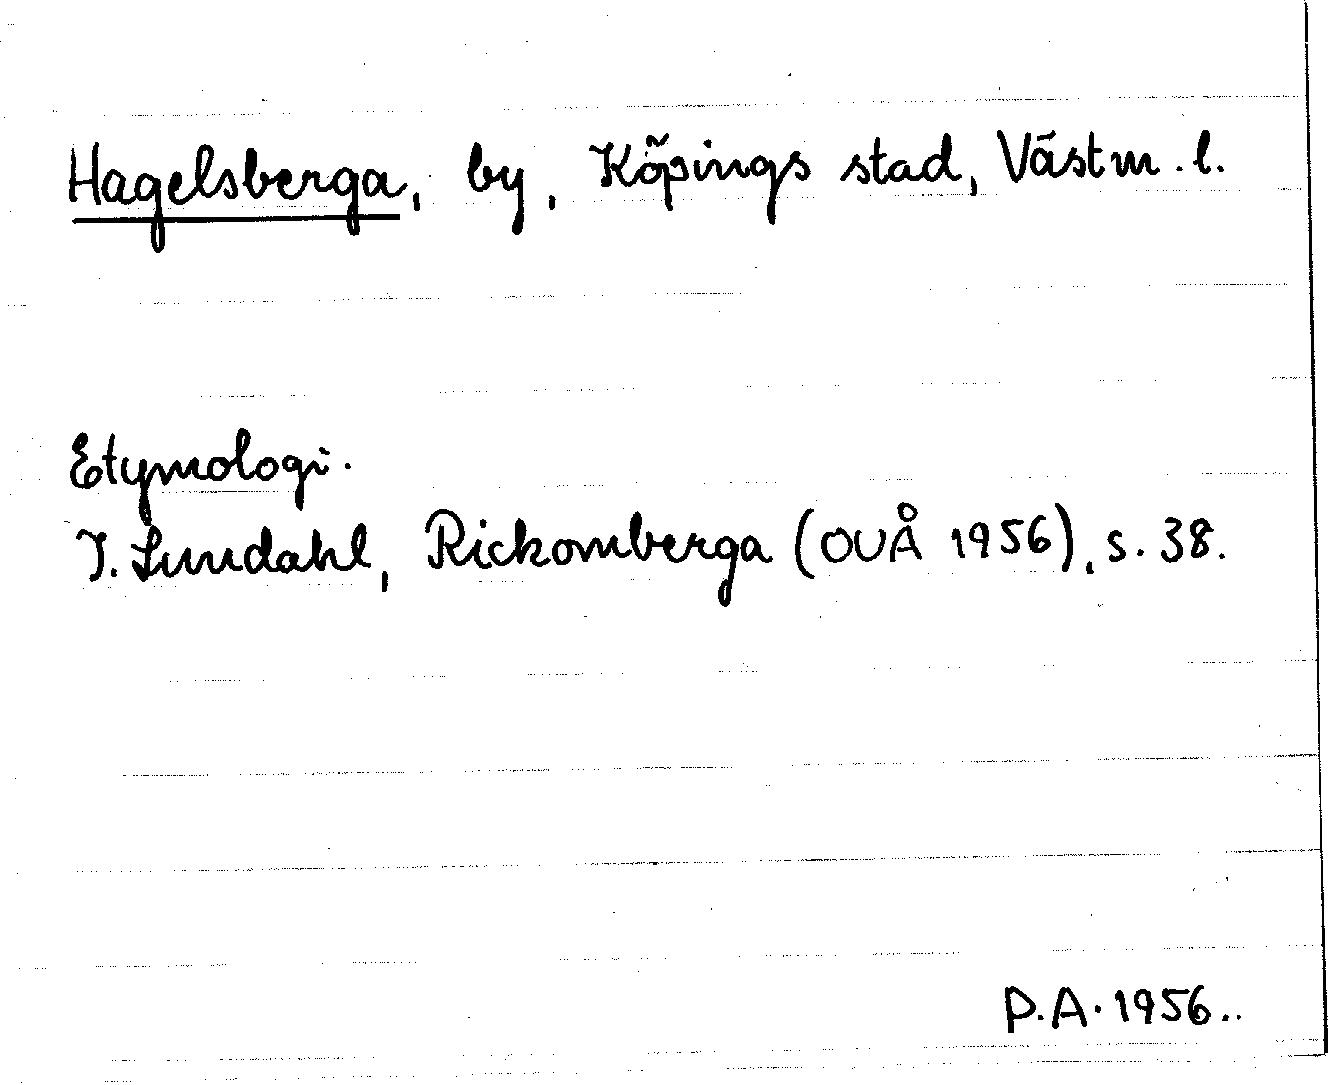 Hagelsberga, by, Köpings stad, Västm. l.
Etymologi.
I. Lundahl, Rickomberga (OUÅ 1956), s. 38.
P.A. 1956..